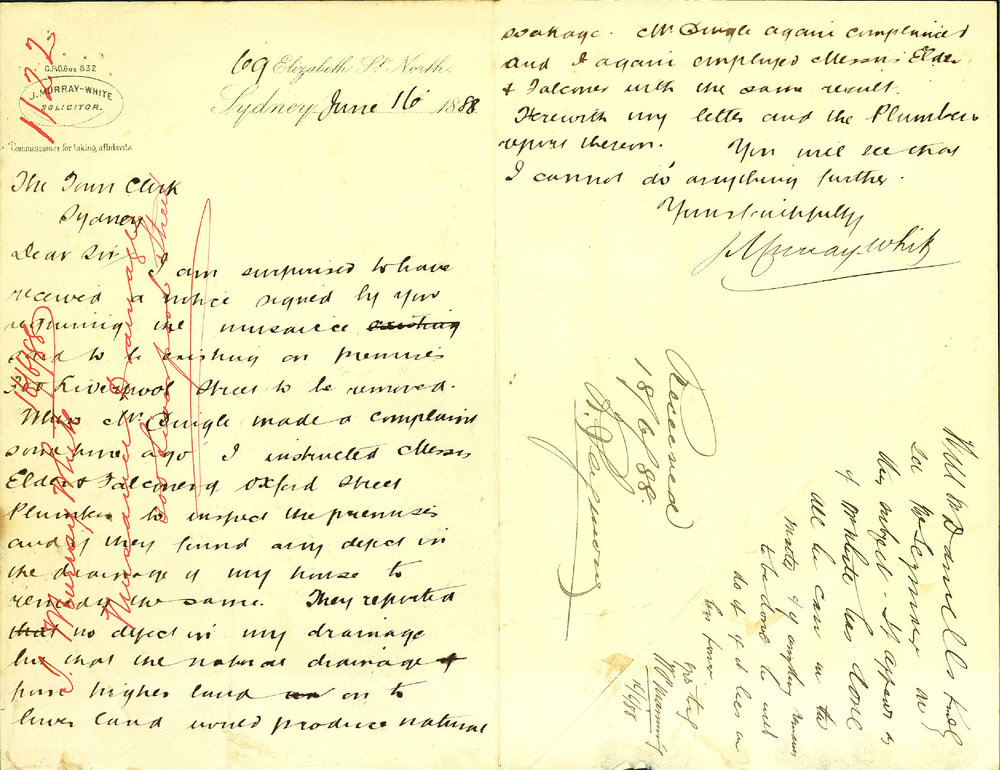 G.P.O. Box 832
J. MURRAY-WHITE
SOLICITOR.
Commissioner for taking affidavits
1122
69 Elizabeth St. North.
Sydney June 16 1888
The Town Clerk
Sydney
Dear Sir
I am surprised to have
received a notice signed by you
requiring the nuisance existing
said to be existing on premises
300 Liverpool Street to be removed.
When Mr. Quigle made a complaint
some time ago I instructed Messrs
Elder & Falconer of Oxford Street
Plumbers to inspect the premises
and if they found any defect in
the drainage of my house to
remedy the same. They reported
that no defect in my drainage
but that the natural drainage
from higher land on to
lower land would produce natural
J. Murray White 16/6/88
Nuisance Drainage
300 Liverpool Street
soakage. Mr Quigle again complained
and I again employed Messrs Elder
& Falconer with the same result.
Herewith my letter and the Plumbers
report thereon. You will see that
I cannot do anything further.
Yours faithfully
J. Murray-White
Received
18/6/88.
Will Mr Daniells kindly
see Mr Seymour on
this subject. It appears as
if Mr White has done
all he can in the
matter & if anything remains
to be done he will
do it if it lies in
his power
16/6/88